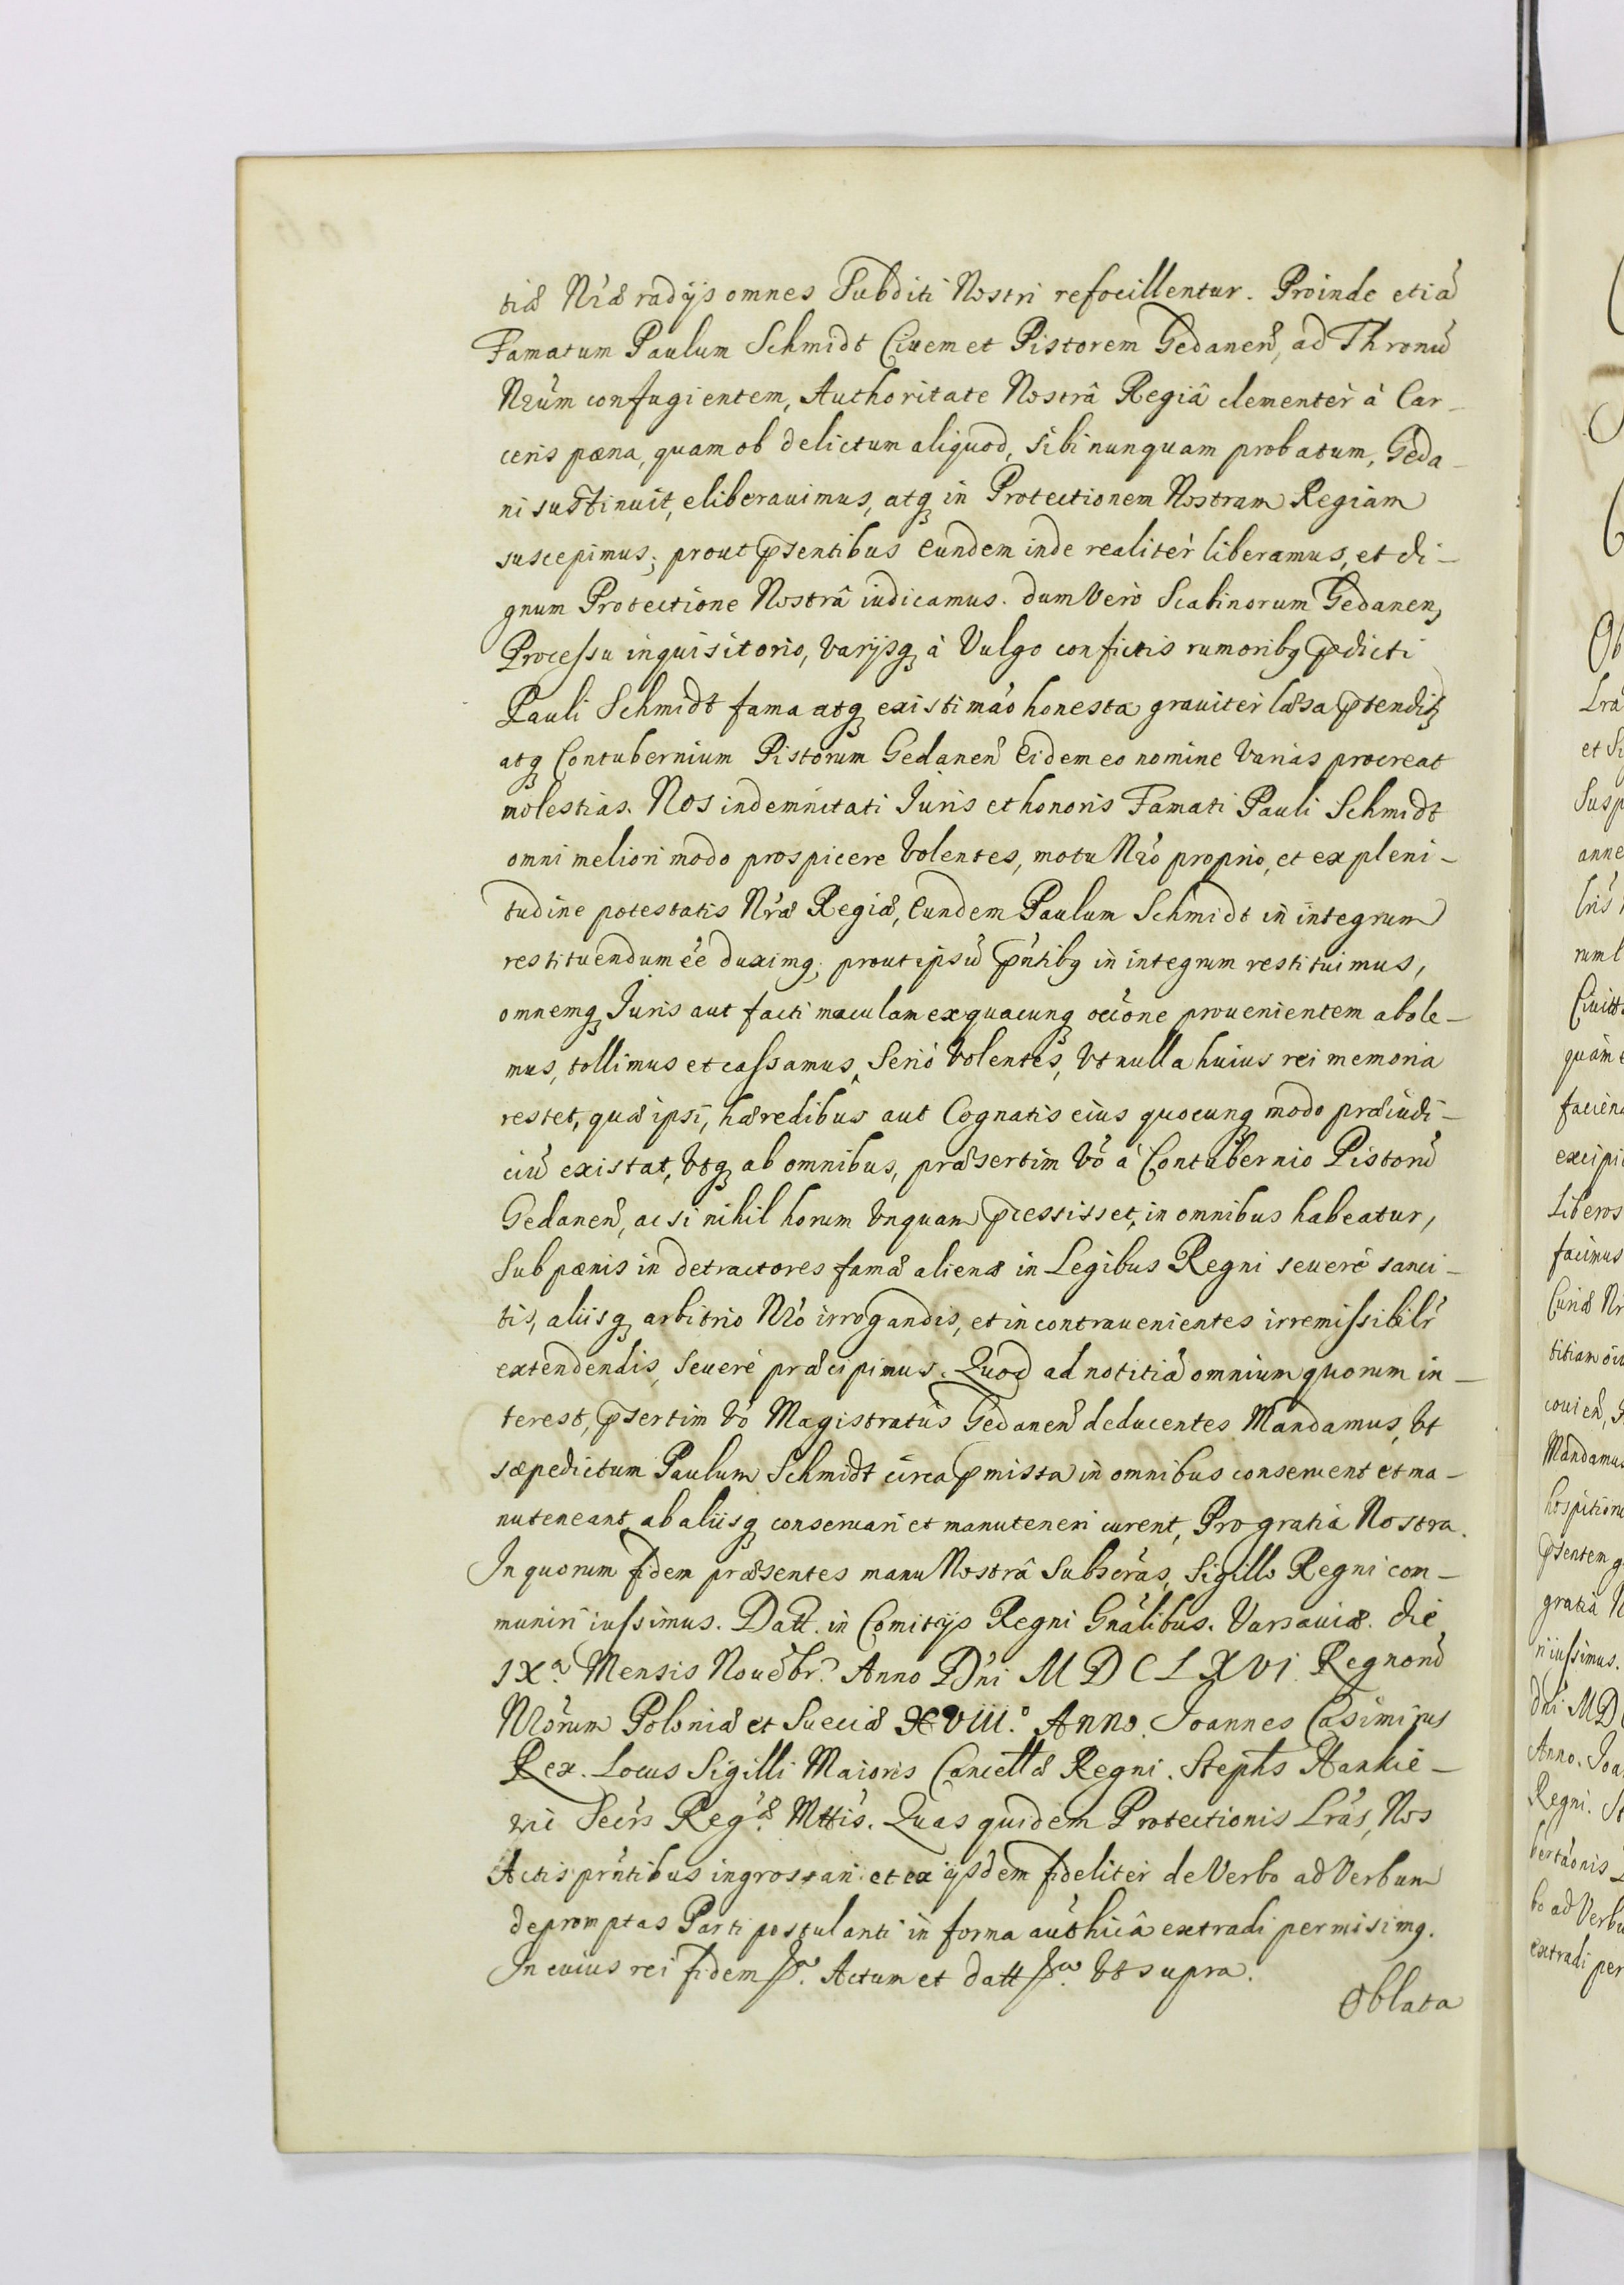 tiæ Nr̃æ radijs omnes Subditi Nostri refocillentur. Proinde etiã
Famatum Paulum Schmidt Civem et Pistorem Gedaneñ, ad Thronũ
Nrũm confugientem, Authoritate Nostrâ Regiâ clementèr à Car-
ceris pæna, quam ob delictum aliquod, sibi nunquam probatum, Geda-
ni sustinuit, eliberauimus, atq in Protectionem Nostram Regiam
suscepimus; prout p̃sentibus eundem inde realitèr liberamus, et di-
gnum Protectione Nostrâ iudicamus. dum Verò Scabinorum Gedanen,
Processu inquisitorio, Varijsq à Vulgo confictis rumoribq p̃dicti
Pauli Schmidt fama atq existimaõ honesta grauitèr læsa p̃tendit̃
atq Contubernium Pistorum Gedaneñ Eidem eo nomine Varias procreat
molestias. Nos indemnitati Juris et honoris Famati Pauli Schmidt
omni meliori modo prospicere Volentes, motu Nrõ proprio, et ex pleni-
tudine potestatis Nrãe Regiæ, Eundem Paulum Schmidt in integrum
restituendum ẽe duximq, prout ipsũ p̃ntibq in integrum restituimus,
omnemq Juris aut facti maculam ex quacunq occõne prouenientem abole-
mus, tollimus et cassamus, Seriò Volentes, Vt nulla huius rei memoria
restet, quæ ipsi, hæredibus aut Cognatis eius quocunq modo præiudi-
ciũ existat, Vtq ab omnibus, præsertim Võ à Contubernio Pistorũ
Gedaneñ, ac si nihil horum Vnquam p̃cessisset, in omnibus habeatur,
Sub pænis in detractores famæ alienæ in Legibus Regni seuerè sanci-
tis, aliisq arbitrio Nrõ irrogandis, et in contrauenientes irremissibilr̃
extendendis, Seuerè præcipimus. Quod ad notitiã omnium quorum in-
terest, p̃sertim Võ Magistratûs Gedaneñ deducentes Mandamus, Vt
sæpedictum Paulum Schmidt circa p̃missa in omnibus conseruent et ma-
nuteneant, ab aliisq conseruari et manuteneri curent, Pro gratia Nostra.
In quorum fidem præsentes manu Nostrâ Subscrãs, Sigillo Regni com-
muniri iussimus. Datt. in Comitijs Regni Gnãlibus. Varsauiæ. die
IXa. Mensis Nouẽbr. Anno Dñi M D C L X VI. Regnorũ
Nrõrum Poloniæ et Sueciæ XVIII.o Anno. Joannes Casimirus
Rex. Locus Sigilli Maioris Cancellæ Regni. Stephs Hankie-
wic Secrs Regæ. Mttis. Quas quidem Protectionis Lrãs, Nos
Actis prñtibus ingrossari et ex ijsdem fidelitèr de Verbo ad Verbum
depromptas Parti postulanti in forma authicâ extradi permisimq.
In cuius rei fidem p. Actum et datt p. Vt supra.
Oblata